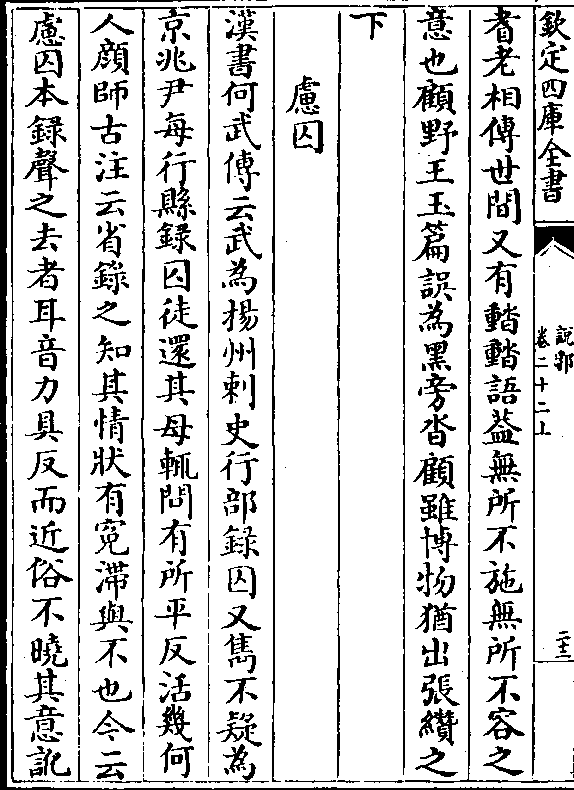 欽定四庫全書
說郛
卷二十二上
二十三
耆老相傳世間又有䵬䵬語葢無所不施無所不容之
意也顧野王玉篇誤為黑旁沓顧雖博物猶出張纘之
下
慮囚
漢書何武傳云武為揚州刺史行部録囚又雋不疑為
京兆尹每行縣録囚徒還其母輒問有所平反活幾何
人顔師古注云省錄之知其情狀有寃滯與不也今云
慮囚本録聲之去者耳音力具反而近俗不曉其意訛